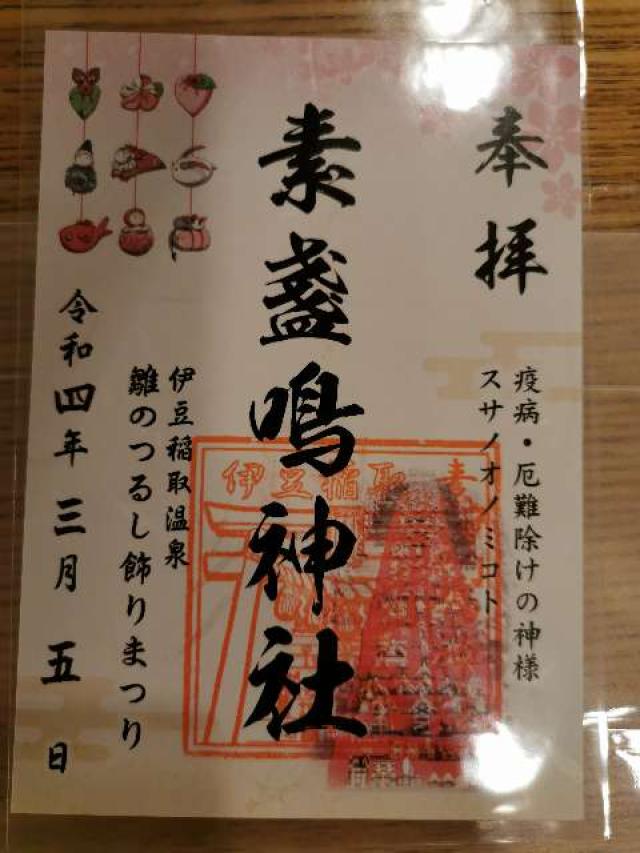 奉拝
疫病・厄難除けの神様
スサノオノミコト
素盞鳴神社
伊豆稲取
素
伊豆稲取温泉
雛のつるし飾りまつり
令和四年三月五日